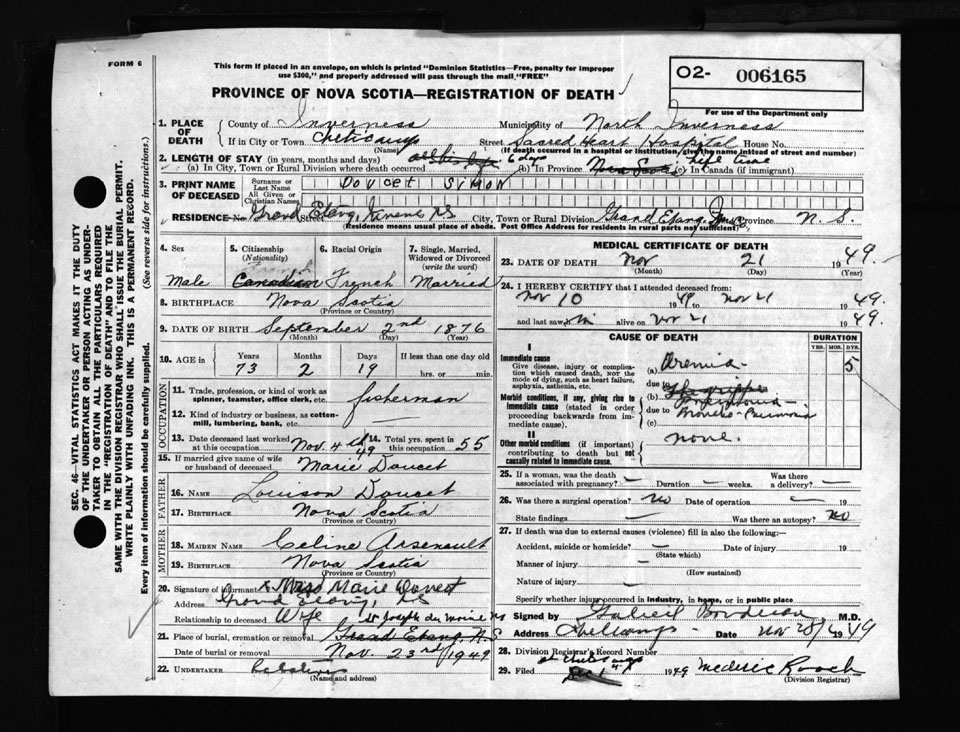 FORM 6
This form if placed in an envelope, on which is printed "Dominion Statistics—Free, penalty for improper
use $300," and properly addressed will pass through the mail "FREE"
O2- 006165
PROVINCE OF NOVA SCOTIA—REGISTRATION OF DEATH
For use of the Department only
1. PLACE OF DEATH
County of Inverness Municipality of North Inverness
If in City or Town Cheticamp Street Sacred Heart Hospital House No.
(Name) (If death occurred in a hospital or institution, give the name instead of street and number)
2. LENGTH OF STAY (in years, months and days)
(a) In City, Town or Rural Division where death occurred 6 days (b) In Province Nova Scotia (c) In Canada (if immigrant) life time
3. PRINT NAME OF DECEASED
Surname or Last Name
All Given or Christian Names
DOUCET SIMON
RESIDENCE No. Grand Etang, Inverness NS Street City, Town or Rural Division Grand Etang, Province N. S.
(Residence means usual place of abode. Post Office Address for residents in rural parts not sufficient)
4. Sex
Male
5. Citizenship
(Nationality)
Canadian
6. Racial Origin
French
7. Single, Married,
Widowed or Divorced
(write the word)
Married
8. BIRTHPLACE Nova Scotia
(Province or Country)
9. DATE OF BIRTH September 2nd 1876
(Month) (Day) (Year)
10. AGE in Years Months Days If less than one day old
73 2 19 hrs. or min.
OCCUPATION
11. Trade, profession, or kind of work as
spinner, teamster, office clerk, etc. fisherman
12. Kind of industry or business, as cotton-
mill, lumbering, bank, etc.
13. Date deceased last worked
at this occupation Nov. 4th 49
14. Total yrs. spent in
this occupation 55
15. If married give name of wife
or husband of deceased Marie Doucet
FATHER
16. NAME Louison Doucet
17. BIRTHPLACE Nova Scotia
(Province or Country)
MOTHER
18. MAIDEN NAME Celine Arsenault
19. BIRTHPLACE Nova Scotia
(Province or Country)
20. Signature of informant x Mrs Marie Doucet
Address Grand Etang, NS
Relationship to deceased Wife
St Joseph du Moine NS
21. Place of burial, cremation or removal Grand Etang, N.S
Date of burial or removal Nov. 23rd 1949
22. UNDERTAKER
(Name and address)
MEDICAL CERTIFICATE OF DEATH
23. DATE OF DEATH Nov 21 1949.
(Month) (Day) (Year)
24. I HEREBY CERTIFY that I attended deceased from:
Nov 10 1949 to Nov 21 1949.
and last saw him alive on Nov 21 1949.
CAUSE OF DEATH DURATION
YRS. MOS. DYS.
I
Immediate cause
Give disease, injury or complica-
tion which caused death, not the
mode of dying, such as heart failure,
asphyxia, asthenia, etc.
(a) Uremia 5
due to
Morbid conditions, if any, giving rise to
immediate cause (stated in order
proceeding backwards from im-
mediate cause).
(b)
due to Broncho-Pneumonia
(c)
II
Other morbid conditions (if important)
contributing to death but not
causally related to immediate cause. none.
25. If a woman, was the death
associated with pregnancy? — Duration — weeks. Was there
a delivery? —
26. Was there a surgical operation? No Date of operation — 19
State findings — Was there an autopsy? No
27. If death was due to external causes (violence) fill in also the following:—
Accident, suicide or homicide? — Date of injury 19
(State which)
Manner of injury —
(How sustained)
Nature of injury —
Specify whether injury occurred in industry, in home, or in public place
Signed by Gabriel Boudreau M.D.
Address Cheticamp - Date Nov 28/ 1949
28. Division Registrar's Record Number
29. Filed at Cheticamp Dec 1st 1949 Mederic Roach
(Division Registrar)
SEC. 46—VITAL STATISTICS ACT MAKES IT THE DUTY
OF THE UNDERTAKER OR PERSON ACTING AS UNDER-
TAKER TO OBTAIN ALL THE PARTICULARS REQUIRED
IN THE "REGISTRATION OF DEATH" AND TO FILE THE
SAME WITH THE DIVISION REGISTRAR WHO SHALL ISSUE THE BURIAL PERMIT.
WRITE PLAINLY WITH UNFADING INK. THIS IS A PERMANENT RECORD.
Every item of information should be carefully supplied. (See reverse side for instructions.)